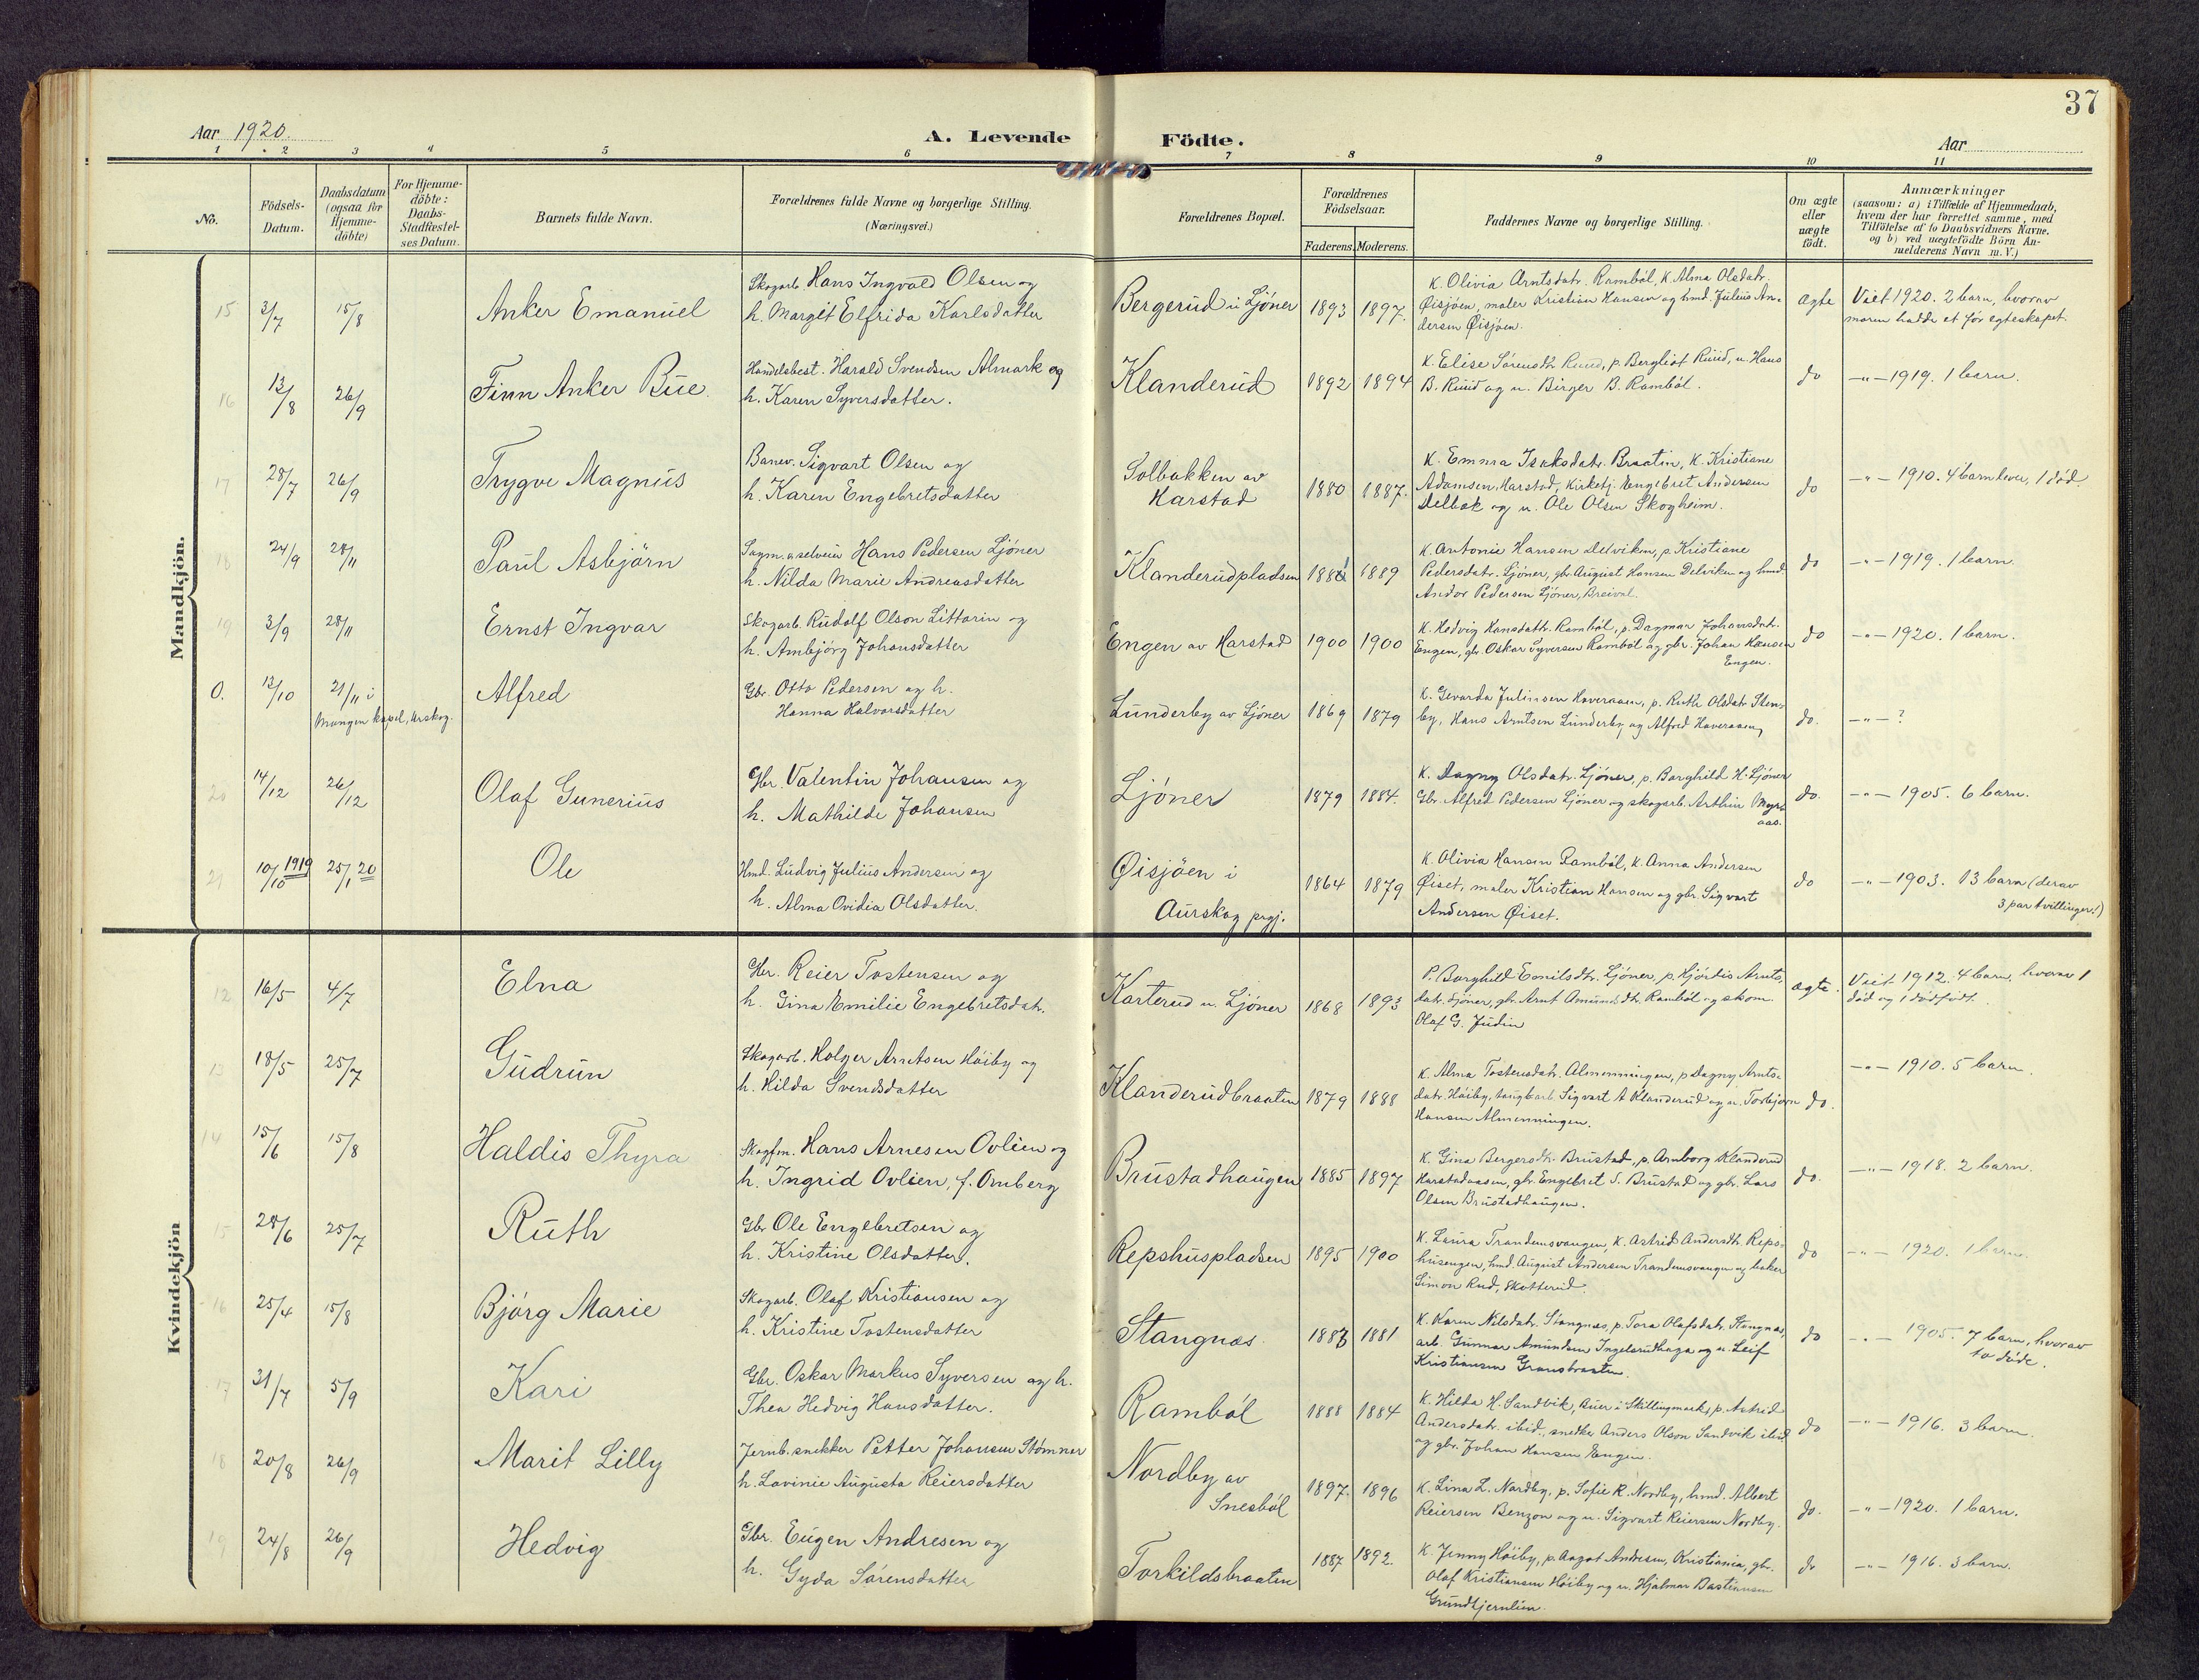 37
Aar 1920.
A. Levende Födte.
Aar
1 2 3 4 5 6 7 8 9 10 11
No.
Födsels-
Datum.
Daabsdatum
(ogsaa for
Hjemme-
döbte)
For Hjemme-
döbte:
Daabs-
Stadfæstel-
ses Datum.
Barnets fulde Navn.
Forældrenes fulde Navne og borgerlige Stilling.
(Næringsvei.)
Forældrenes Bopæl.
Forældrenes
Födselsaar.
Faderens. Moderens.
Faddernes Navne og borgerlige Stilling.
Om ægte
eller
uægte
födt.
Anmærkninger
(saasom: a) i Tilfælde af Hjemmedaab,
hvem der har forrettet samme, med
Tilföielse af to Daabsvidners Navne.
og b) ved uægtefödte Börn An-
melderens Navn m. V.)
Mandkjön.
15 3/7 15/8 Anker Emanuel
Skogarb. Hans Ingvald Olsen og
h. Margit Elfrida Karlsdatter
Bergerud u. Ljöner 1893 1897.
K. Olivia Arntsdatr. Ramböl, K. Alma Olsdatr.
Øisjöen, maler Kristian Hansen og hmd. Julius An-
dersen Øisjöen.
ægte
Viet 1920. 2 barn, hvorav
moren hadde et før egteskapet.
16 13/8 26/9 Finn Anker Bue.
Handelsbest. Harald Svendsen Almark og
h. Karen Syversdatter.
Klanderud 1892 1894
K. Elise Sörensdtr. Ruud, p. Bergliot Ruud, u. Hans
B. Ruud og u. Birger B. Ramböl.
do
-"- 1919. 1 barn.
17 28/7 26/9 Trygve Magnus
Banev. Sigvart Olsen og
h. Karen Engebretsdatter
Solbakken av
Harstad
1880 1887.
K. Emma Isaksdatr. Braatin, K. Kristiane
Adamsen, Harstad, Kirketj. Engebret Andersen
Delbak og u. Ole Olsen Skogheim.
do
-"- 1910. 4 barn lever, 1 död.
18 24/9 28/11 Paul Asbjörn
Sagm. & selveier Hans Pedersen Ljöner
h. Nilda Marie Andreasdatter
Klanderudpladsen 1889
K. Antonie Hansen Delviken, p. Kristiane
Pedersdatr. Ljöner, gbr. August Hansen Delviken og hmd.
Andor Pedersen Ljöner, Breivol.
do
-"- 1919. 1 barn.
19 3/9 28/11 Ernst Ingvar
Skogarb. Rudolf Olson Littorin og
h. Ambjörg Johansdatter
Engen av Harstad 1900 1900
K. Hedvig Hansdattr. Ramböl, p. Dagmar Johansdatr.
Engen, gbr. Oskar Syversen Ramböl og gbr. Johan Hansen
Engen.
do
-"- 1920. 1 barn.
0. 12/10 21/11 i
Mangen kapel, Urskog.
Alfred
Gbr. Otto Pedersen og h.
Hanna Halvorsdatter
Lunderby av Ljöner 1869 1879
K. Gevarda Julinsen Haveraaen, p. Ruth Olsdatr. Sten-
by, Hans Arntsen Lunderby og Alfred Haveraaen,
do.
-"- ?
20 14/12 26/12 Olaf Gunerius
Gbr. Valentin Johansen og
h. Mathilde Johansen
Ljöner 1879 1884.
K. Dagny Olsdatr. Ljöner, p. Borghild H. Ljöner
Gbr. Alfred Pedersen Ljöner og skogarb. Arthur Myr-
aas.
do.
-"- 1905. 6 barn.
21 10/10 1919 25/1 20 Ole
Hmd. Ludvig Julius Andersen og
h. Alma Ovidia Olsdatter.
Øisjöen i
Aurskog prgj.
1864 1879
K. Olivia Hansen Ramböl, K. Anna Andersen
Öiset, maler Kristian Hansen og gbr. Sigvart
Andersen Öiset.
do
-"- 1903. 13 barn (derav
3 par tvillinger!)
Kvindekjön
12 16/5 4/7 Elna
Gbr. Reier Tostensen og
h. Gina Emilie Engebretsdatr.
Karterud u. Ljöner 1868 1893
P. Borghild Emilsdtr. Ljöner, p. Hjördis Arnts-
datr. Ljöner, gbr. Arnt Amundsdtr. Ramböl og skom.
Olaf G. Judin
ægte.
Viet 1912. 4 barn, hvorav 1
död og 1 dödfödt.
13 18/5 25/7 Gudrun
Skogarb. Holger Arntsen Höiby og
h. Hilda Svendsdatter
Klanderudbraaten 1879 1888
K. Alma Tostensdatr. Almenningen, p. Dagny Arnts-
datr. Höiby, Sigvart A Klanderud og u. Torbjorn
Hansen Almenningen.
do.
-"- 1910. 5 barn.
14 15/6 15/8 Haldis Thyra
Skogfm. Hans Arnesen Ovlien og
h. Ingrid Ovlien, f. Omberg
Brustadhaugen 1885 1897
K. Gina Bergersdtr. Brustad, p. Arnborg Klanderud
Harstadaasen, gbr. Engebret S. Brustad og gbr. Lars
Olsen Brustadhaugen.
do.
-"- 1918. 2 barn.
15 28/6 25/7 Ruth
Gbr Ole Engebretsen og
h. Kristine Olsdatter.
Repshuspladsen 1895 1900
K. Laura Trandemsvangen, K. Astrid Andersdtr. Reps-
husengen, hmd. August Andersen Trandemsvangen og baker
Simon Rud, Skotterud.
do
-"- 1920. 1 barn.
16 25/4 15/8 Björg Marie
Skogarb. Olaf Kristiansen og
h. Kristine Tostensdatter
Stangnæs. 1881
K. Karen Nilsdatr. Stangnæs, p. Tora Olafsdatr. Stangnæs,
arb. Gunnar Amundsen Ingelsrudhaga og u. Leif
Kristiansen Gransbraaten.
do
-"- 1905. 7 barn, hvorav
to döde.
17 31/7 5/9 Kari
Gbr. Oskar Markus Syversen og h.
Thea Hedvig Hansdatter.
Ramböl 1888 1884
K. Hilda H. Sandvik, Buer i Skillingmark, p. Astrid
Andersdatr. ibid., snedker Anders Olson Sandvik ibid
og gbr. Johan Hansen Engen.
do
-"- 1916. 3 barn.
18 20/8 26/9 Marit Lilly
Jernb. snekker Petter Johansen Stömner
h. Lovinie Augusta Reiersdatter
Nordby av
Snesböl
1897. 1896
K. Lina L. Nordby, p. Sofie R. Nordby, hmd. Albert
Reiersen Benzon og u. Sigvart Reiersen Nordby.
do.
-"- 1920. 1 barn.
19 24/8 26/9 Hedvig
Gbr. Eugen Andresen og
h. Gyda Sörensdatter
Torkildsbraaten 1887 1892.
K. Jenny Höiby, p. Aagot Andresen, Kristiania, gbr.
Olaf Kristiansen Höiby og u. Hjalmar Bastiansen
Grundtjernlien.
do
-"- 1916. 3 barn.